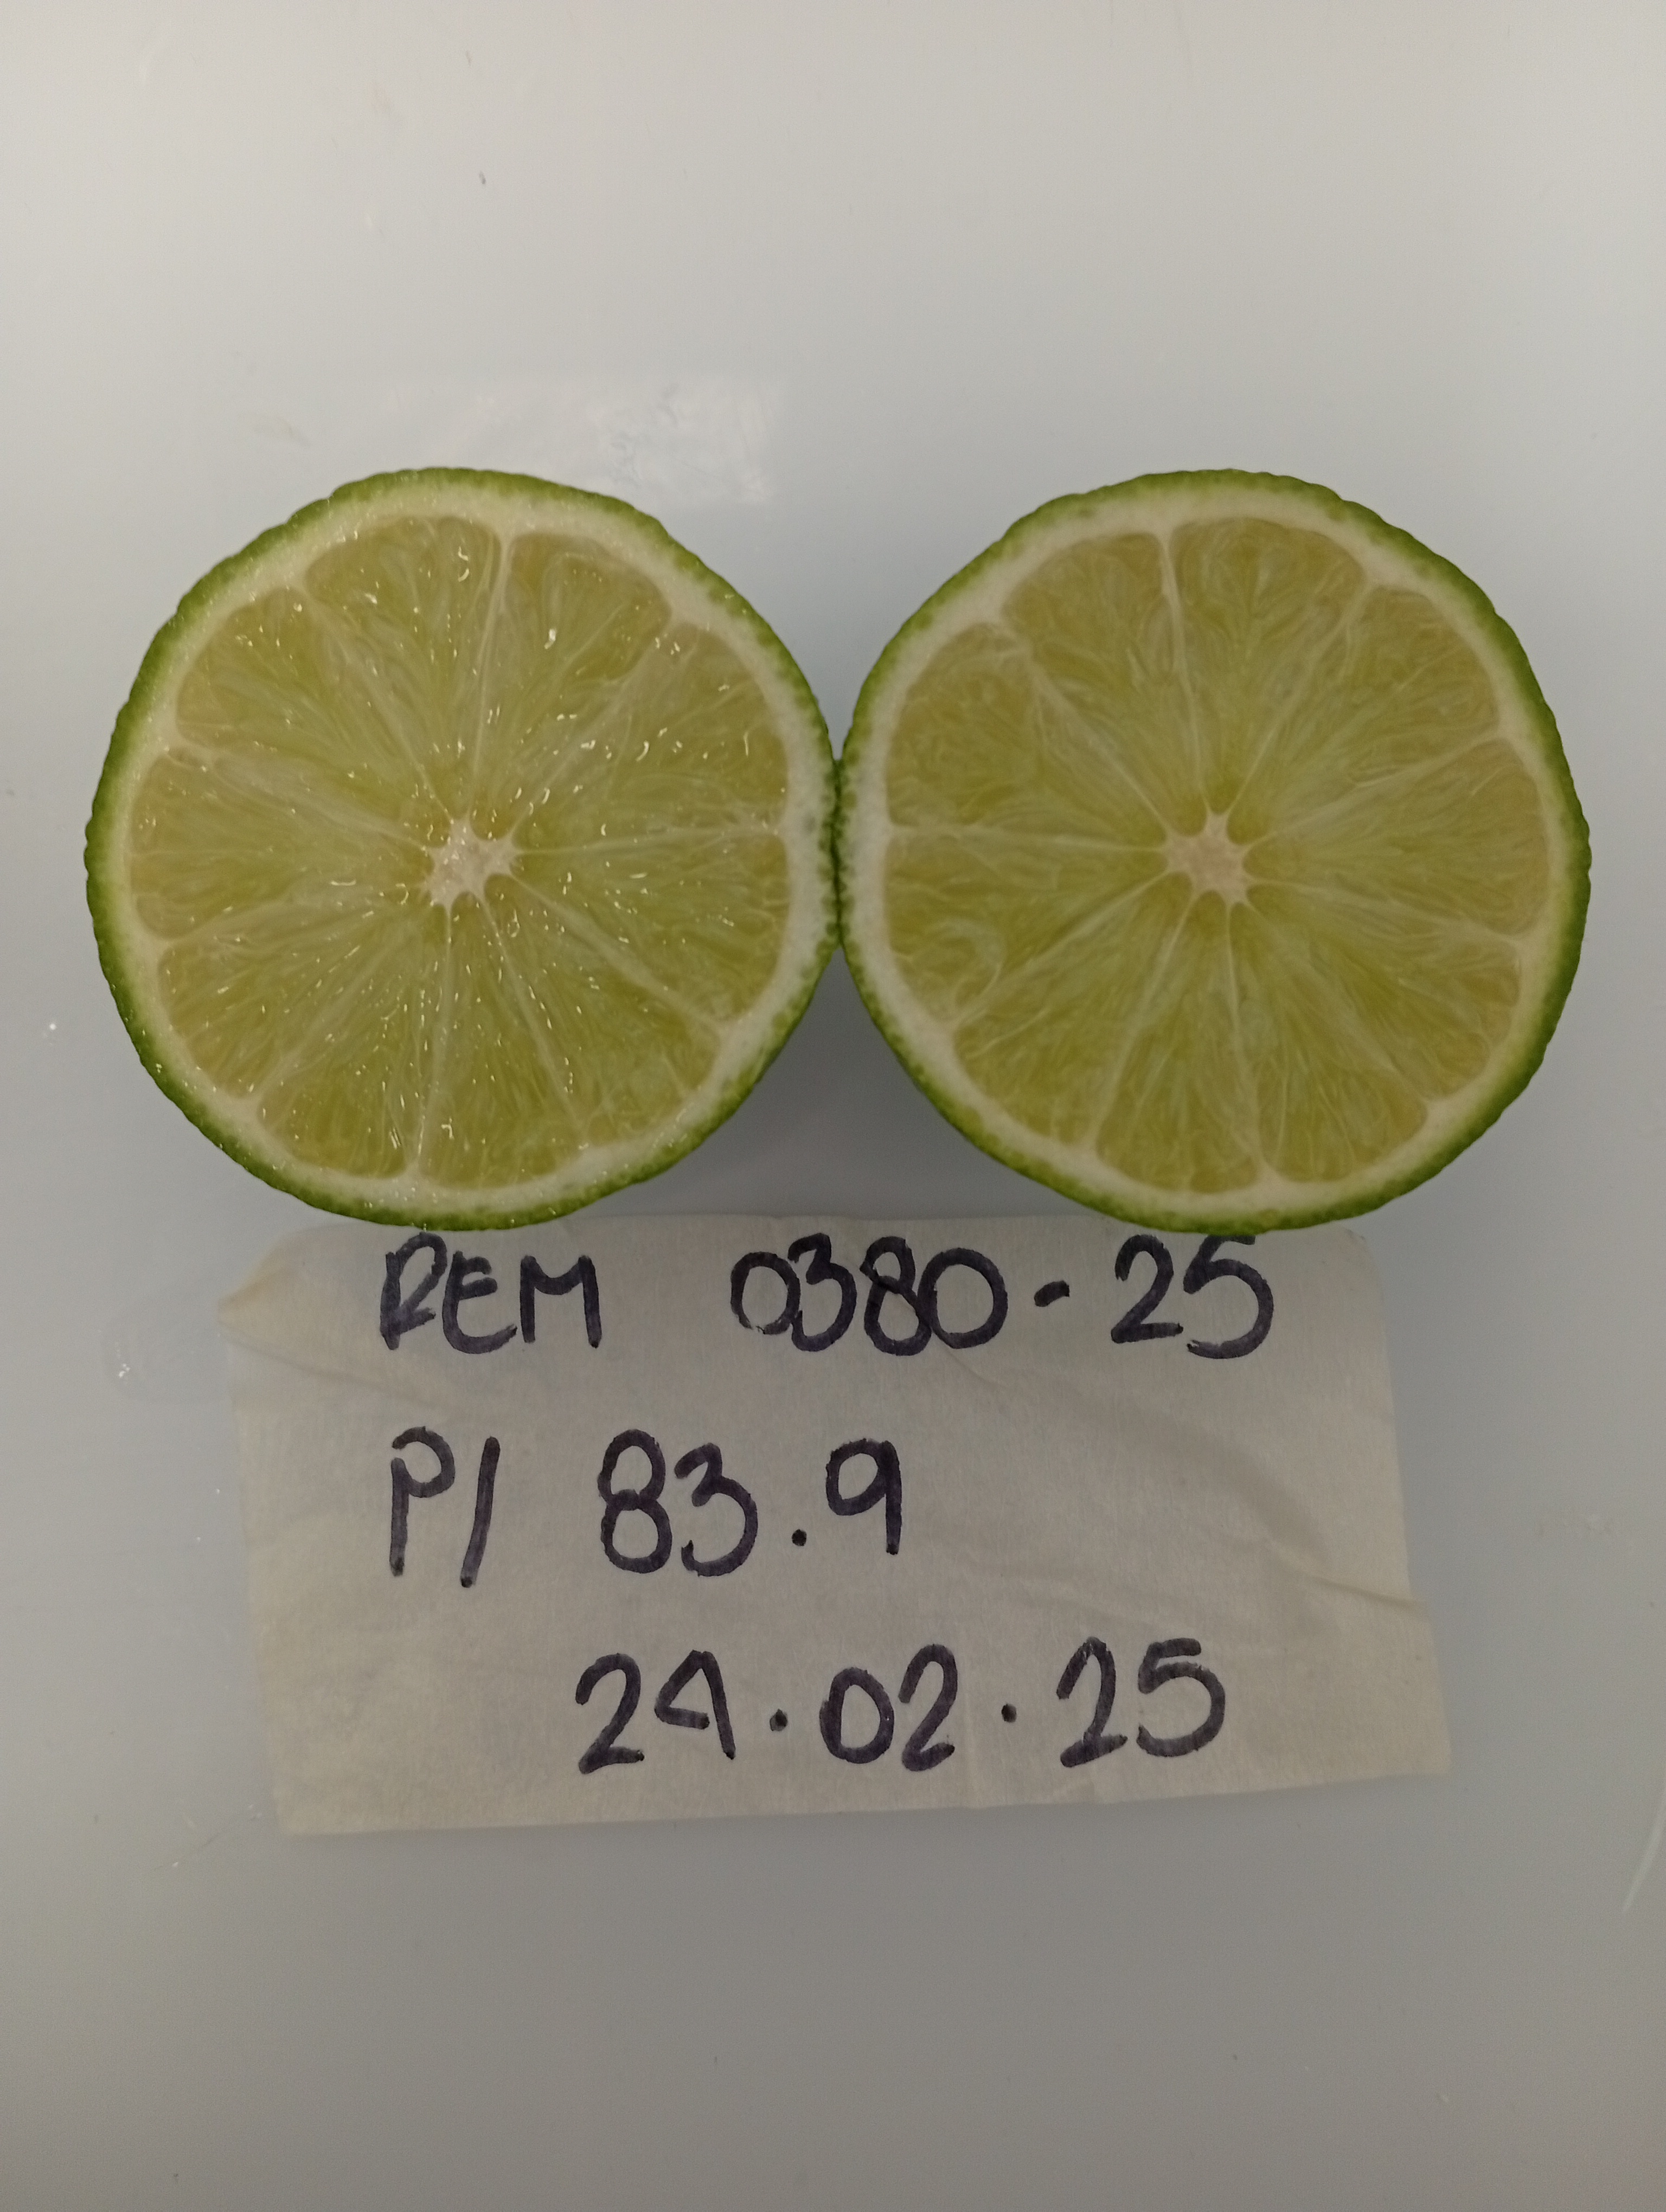 REM 0380-25
P/ 83.9
24.02.25